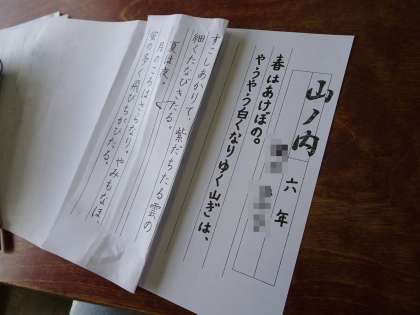 山ノ内
六年
春はあけぼの。
やうやう白くなりゆく山ぎは、
すこしあかりて、紫だちたる雲の
細くたなびきたる。
夏は夜。
月のころはさらなり。やみもなほ、
蛍の多く飛びちがひたる。